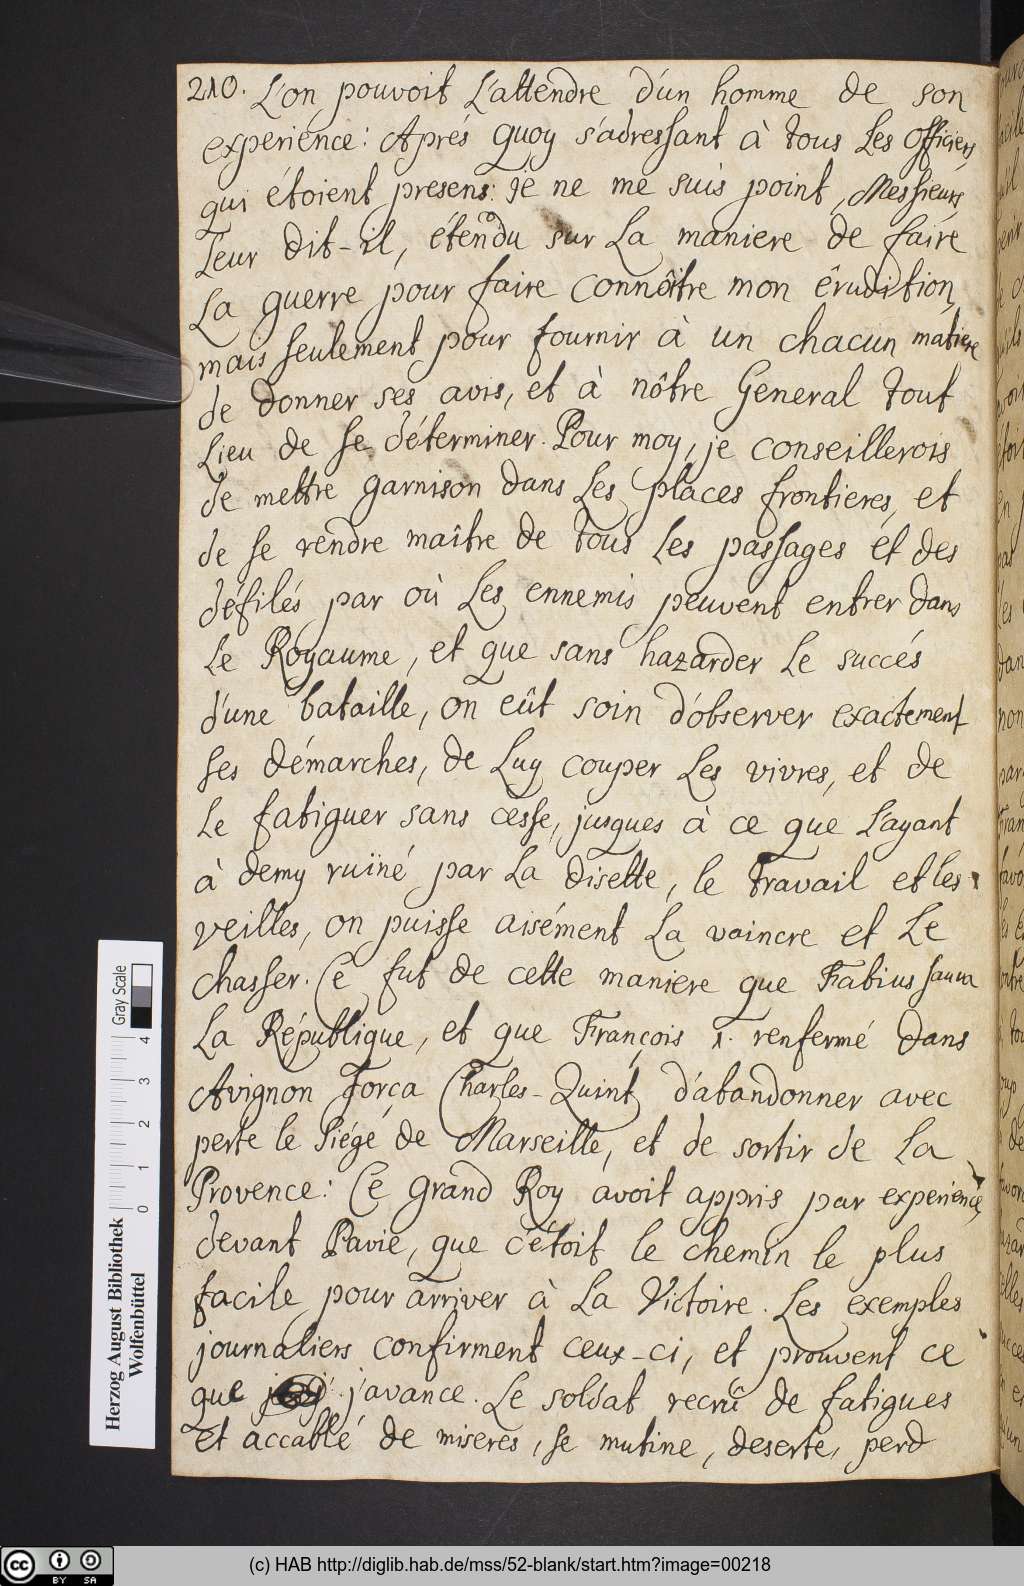 210. L'on pouvoit L'attendre d'un homme de son
experience: Aprés quoy s'adressant à tous Les officiers
qui étoient presens: je ne me suis point, Messieurs,
Leur dit-il, étendu sur La maniere de faire
La guerre pour faire connoître mon érudition,
mais seulement pour fournir à un chacun matiere
de donner ses avis, et à nôtre General tout
Lieu de se déterminer. Pour moy, je conseillerois
de mettre garnison dans Les places frontieres, et
de se rendre maître de tous Les passages et des
défilés par où Les ennemis peuvent entrer dans
Le Royaume, et que sans hazarder Le succés
d'une bataille, on eût soin d'observer exactement
ses démarches, de Luy couper Les vivres, et de
Le fatiguer sans cesse, jusques à ce que L'ayant
à demy ruïné par La disette, le travail et les
veilles, on puisse aisément La vaincre et Le
chasser. Ce fut de cette maniere que Fabius sauva
La République, et que François 1. renfermé dans
Avignon força Charles-Quint d'abandonner avec
perte le siége de Marseille, et de sortir de La
Provence: Ce grand Roy avoit appris par experience,
devant Pavie, que c'étoit le chemin le plus
facile pour arriver à La Victoire. Les exemples
journaliers confirment ceux-ci, et prouvent ce
que j'avance. Le soldat recrû de fatigues
et accablé de miseres, se mutine, deserte, perd
Herzog August Bibliothek
Wolfenbüttel
Gray Scale
0 1 2 3 4
cc BY SA
(c) HAB http://diglib.hab.de/mss/52-blank/start.htm?image=00218